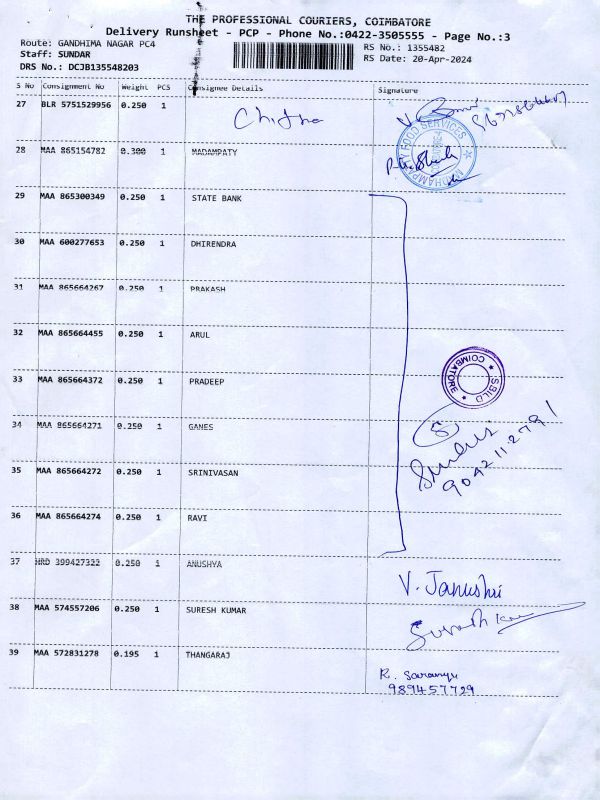 THE PROFESSIONAL COURIERS, COIMBATORE
Delivery Runsheet - PCP - Phone No.:0422-3505555 - Page No.:3
Route: GANDHIMA NAGAR PC4
RS No.: 1355482
Staff: SUNDAR
RS Date: 20-Apr-2024
DRS No.: DCJB135548203
S No Consignment No Weight PCS Consignee Details Signature
27 BLR 5751529956 0.250 1 Chitra
28 MAA 865154782 0.300 1 MADAMPATY
MADHAMPATTY FOOD SERVICES
29 MAA 865300349 0.250 1 STATE BANK
30 MAA 600277653 0.250 1 DHIRENDRA
31 MAA 865664267 0.250 1 PRAKASH
32 MAA 865664455 0.250 1 ARUL
33 MAA 865664372 0.250 1 PRADEEP
COIMBATORE * SBILD *
34 MAA 865664271 0.250 1 GANES
8
35 MAA 865664272 0.250 1 SRINIVASAN
9042112791
36 MAA 865664274 0.250 1 RAVI
37 HRD 399427322 0.250 1 ANUSHYA
V. Janushri
38 MAA 574557206 0.250 1 SURESH KUMAR
39 MAA 572831278 0.195 1 THANGARAJ
R. Saranya
989457729